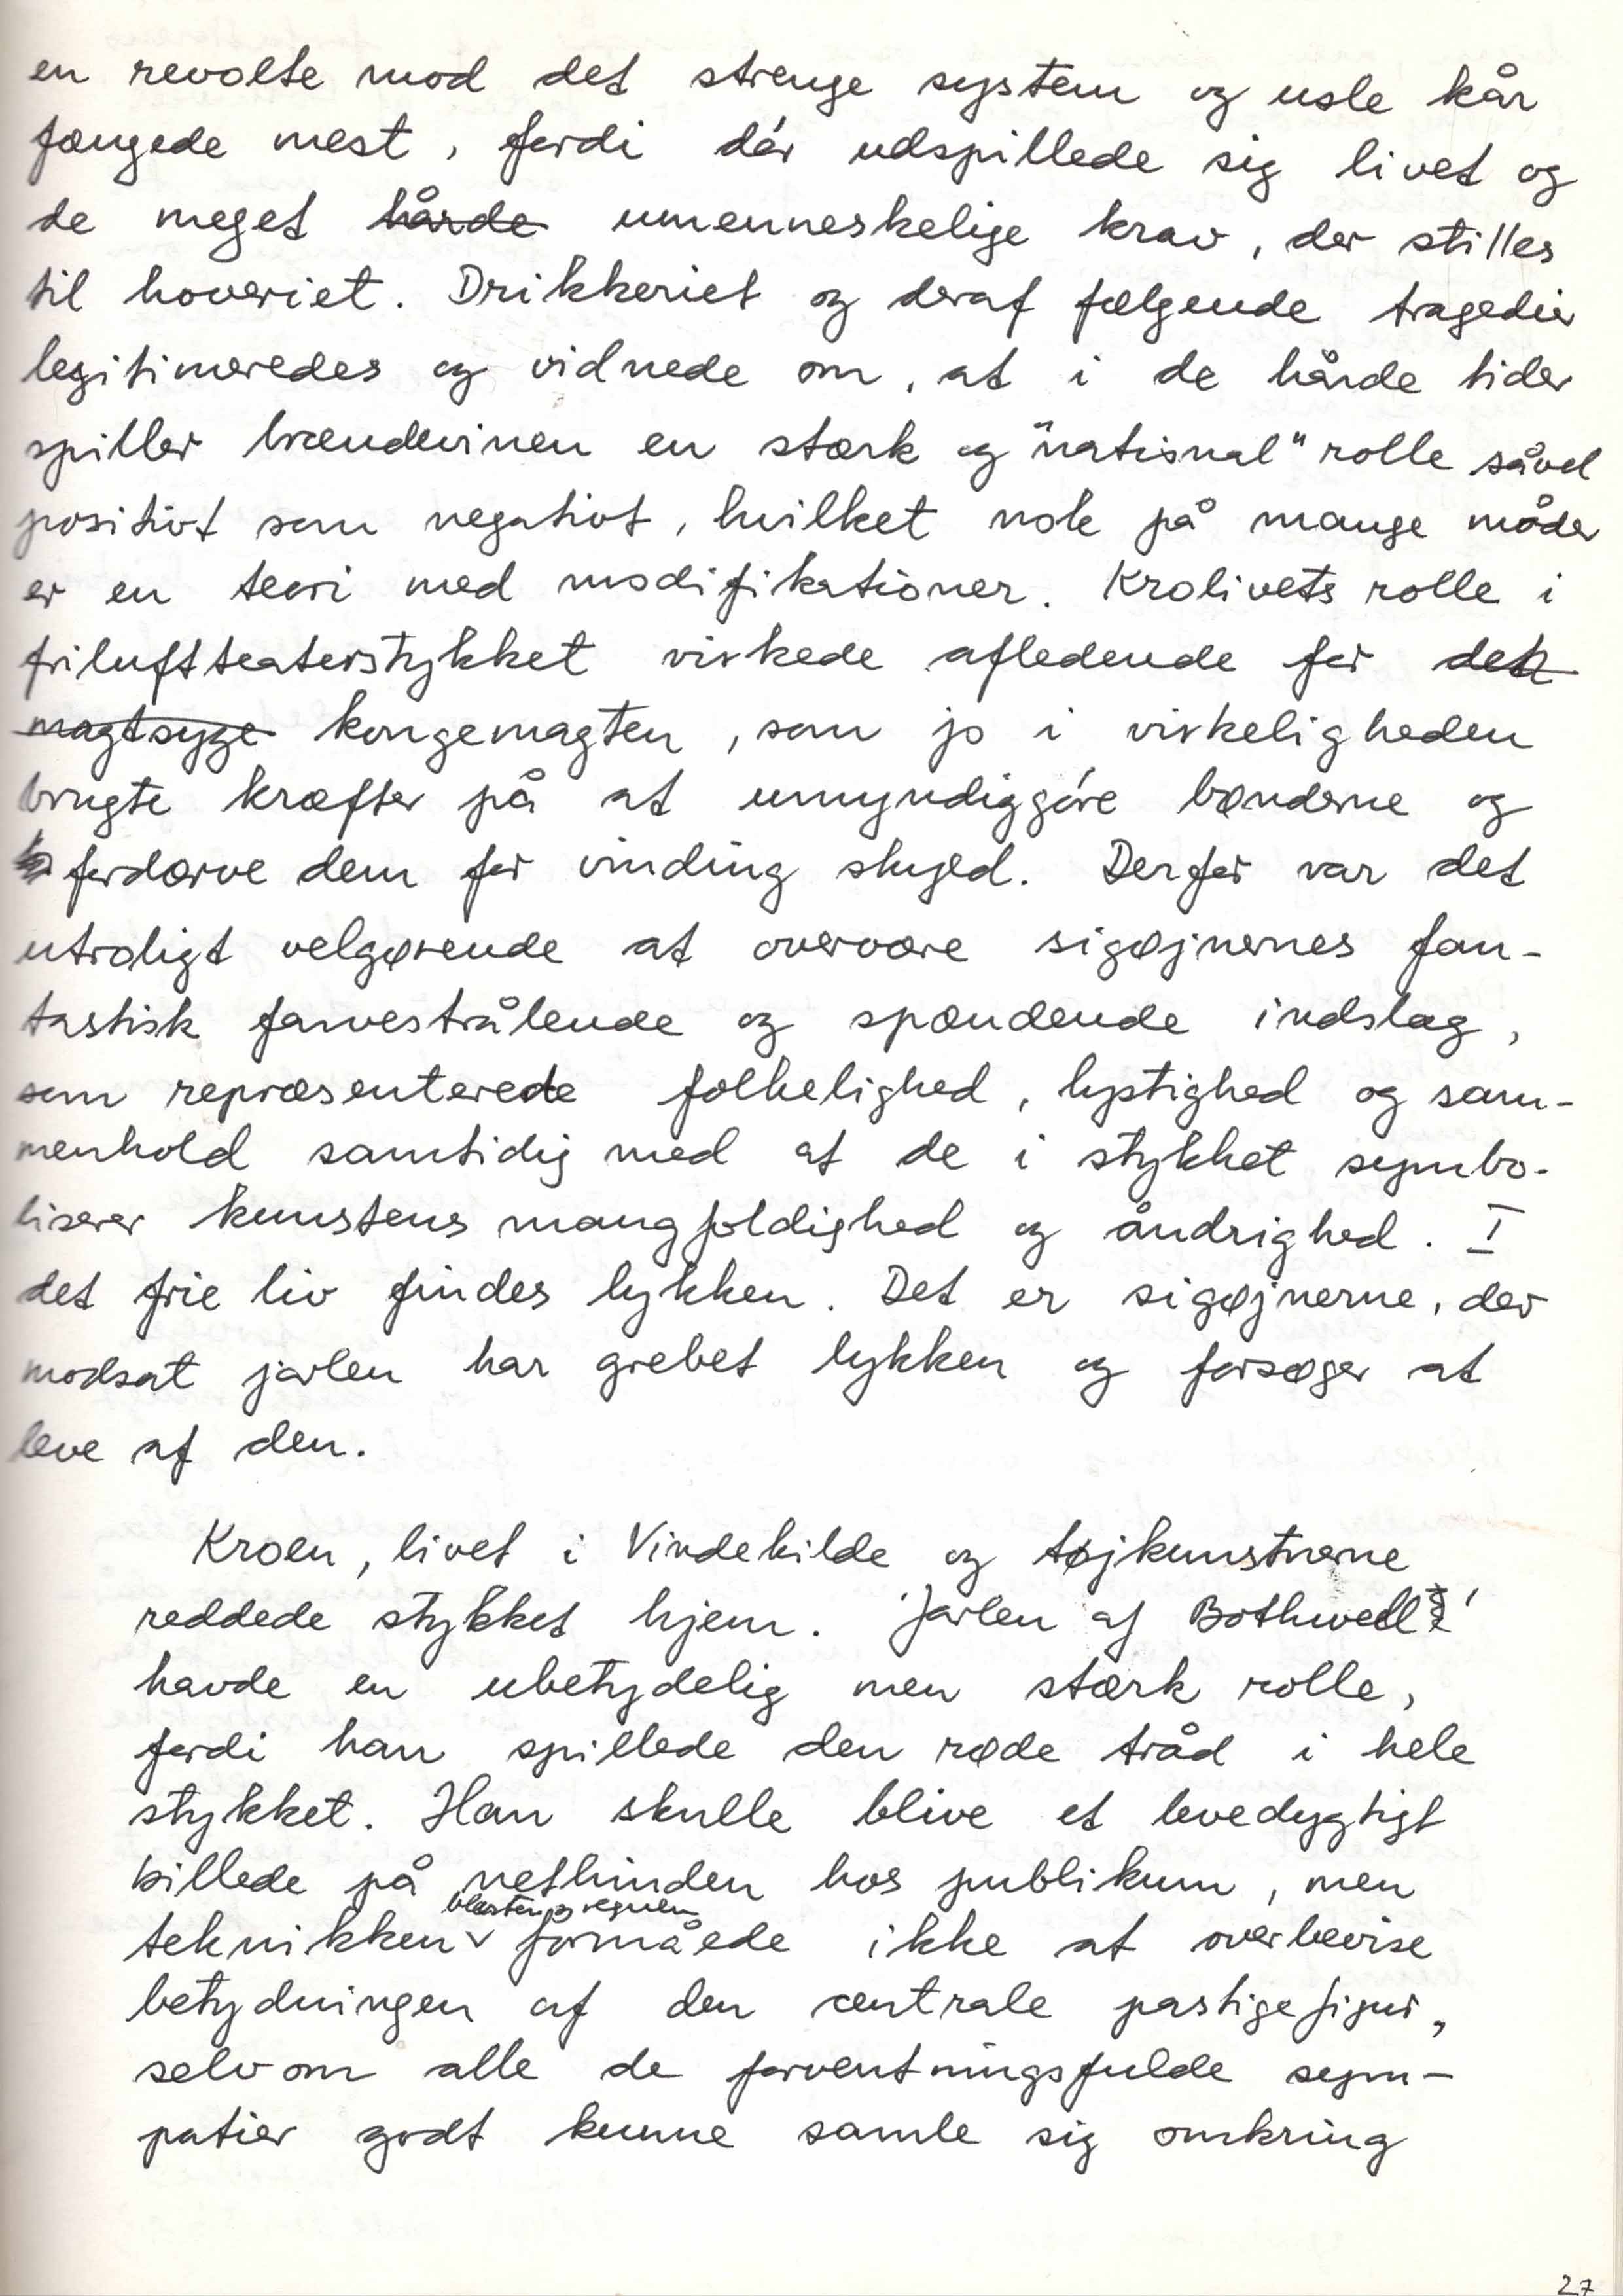 en revolte mod det strenge system og usle kår
fængede mest, fordi dér udspillede sig livet og
de meget hårde umenneskelige krav, der stilles
til hoveriet. Drikkeriet og deraf følgende tragedier
legitimeredes og vidnede om, at i de hårde tider
spiller brændevinen en stærk og "national" rolle såvel
positivt som negativt, hvilket nok på mange måder
er en teori med modifikationer. Krolivets rolle i
friluftteaterstykket virkede afledende for den
magtsyge kongemagten, som jo i virkeligheden
brugte kræfter på at umyndiggøre bønderne og
fordærve dem for vinding skyld. Derfor var det
utroligt velgørende at overvære sigøjnernes fan-
tastisk farvestrålende og spændende indslag,
som repræsenterede folkelighed, lystighed og sam-
menhold samtidig med at de i stykket symbo-
liserer kunstens mangfoldighed og åndrighed. I
det frie liv findes lykken. Det er sigøjnerne, der
modsat jarlen har grebet lykken og forsøger at
leve af den.
Kroen, livet i Vindekilde og tøjkunstnerne
reddede stykket hjem. 'Jarlen af Bothwell'
havde en ubetydelig men stærk rolle,
fordi han spillede den røde tråd i hele
stykket. Han skulle blive et levedygtigt
billede på nethinden hos publikum, men
blæsten og regnen
teknikken formåede ikke at overbevise
betydningen af den centrale pastigefigur,
selvom alle de forventningsfulde sym-
patier godt kunne samle sig omkring
27